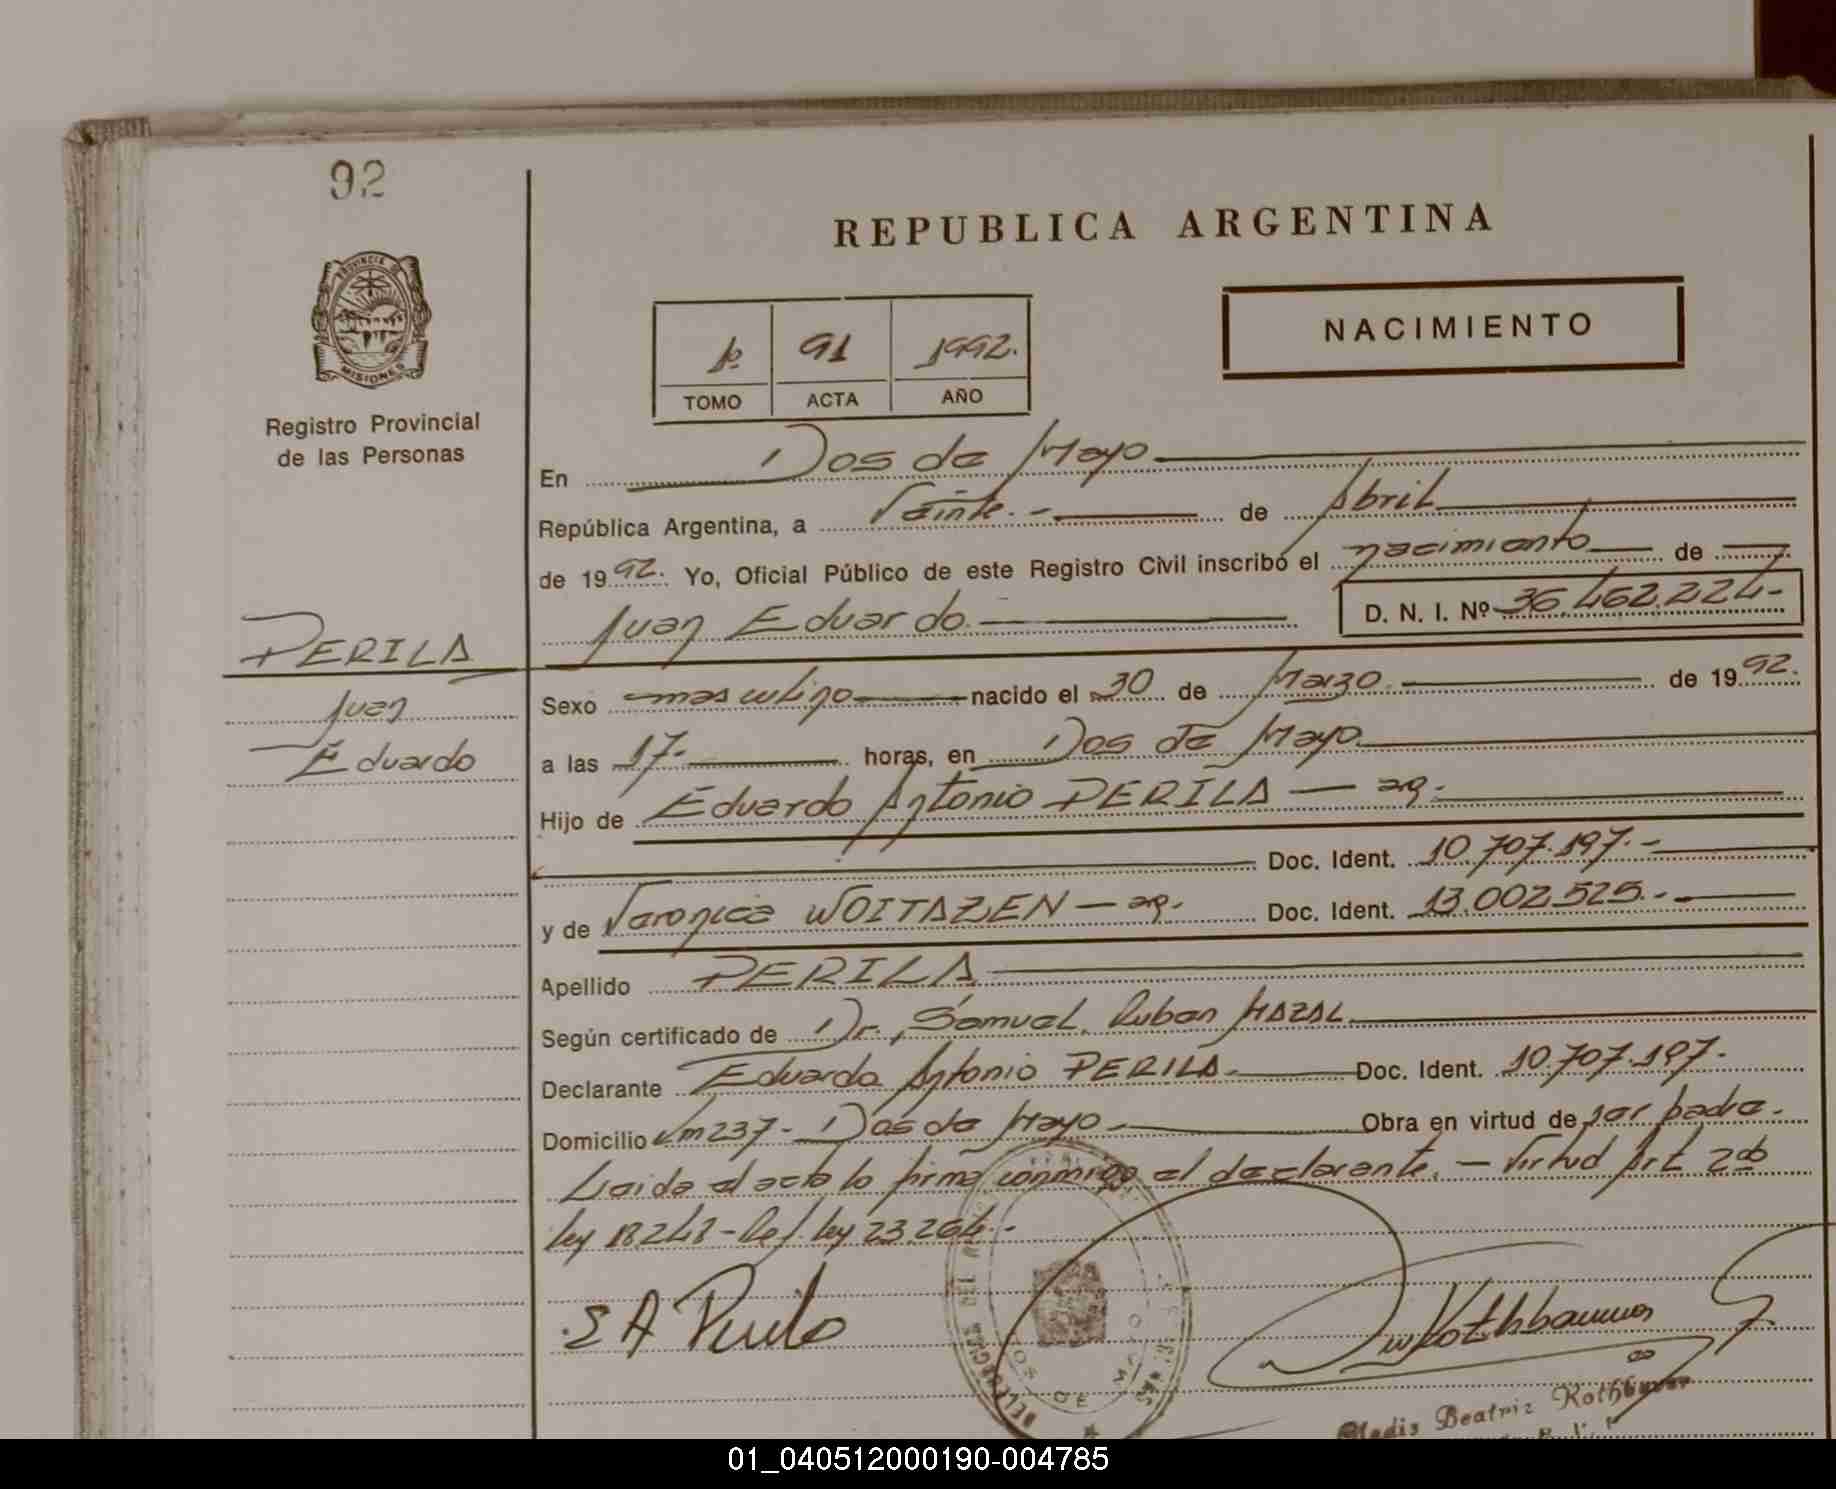 92
REPUBLICA ARGENTINA
PROVINCIA DE
MISIONES
Registro Provincial
de las Personas
1º 91 1992.
TOMO ACTA AÑO
NACIMIENTO
En Dos de Mayo
República Argentina, a Veinte.- de Abril
de 1992. Yo, Oficial Público de este Registro Civil inscribo el nacimiento de
Juan Eduardo.- D. N. I. Nº 36.462.224-
PERILA
Juan
Eduardo
Sexo masculino nacido el 30 de Marzo. de 1992.
a las 17. horas, en Dos de Mayo
Hijo de Eduardo Antonio PERILA - arg.
Doc. Ident. 10.707.197.-
y de Veronica WOITAZEN - arg. Doc. Ident. 13.002.525.-
Apellido PERILA
Según certificado de Dr. Samuel Ruben MAZAL
Declarante Eduardo Antonio PERILA. Doc. Ident. 10.707.197.
Domicilio Km 237- Dos de Mayo. Obra en virtud de ser padre.
Leida el acta lo firma conmigo el declarante. - Virtud Art. 2do
ley 18.248 - Ref. ley 23.264.-
E A Perila
DOS DE MAYO
Gladis Beatriz Rothbauer
01_040512000190-004785